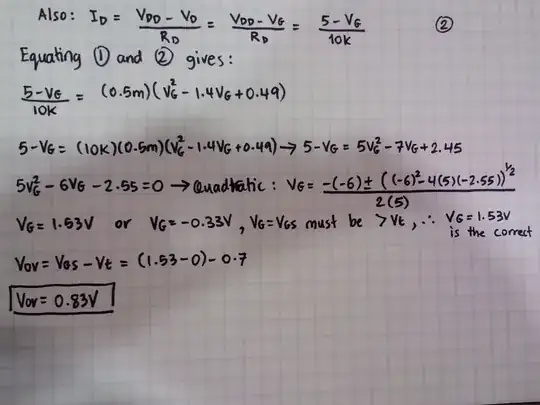 Also: I_D = (V_DD - V_D)/R_D = (V_DD - V_G)/R_D = (5 - V_G)/10k ②
Equating ① and ② gives:
(5 - V_G)/10k = (0.5m)(V_G² - 1.4V_G + 0.49)
5 - V_G = (10k)(0.5m)(V_G² - 1.4V_G + 0.49) → 5 - V_G = 5V_G² - 7V_G + 2.45
5V_G² - 6V_G - 2.55 = 0 → Quadratic: V_G = (-(-6) ± ((-6)² - 4(5)(-2.55))^½)/2(5)
V_G = 1.53V or V_G = -0.33V, V_G = V_GS must be > V_t, ∴ V_G = 1.53V is the correct
V_OV = V_GS - V_t = (1.53 - 0) - 0.7
V_OV = 0.83V